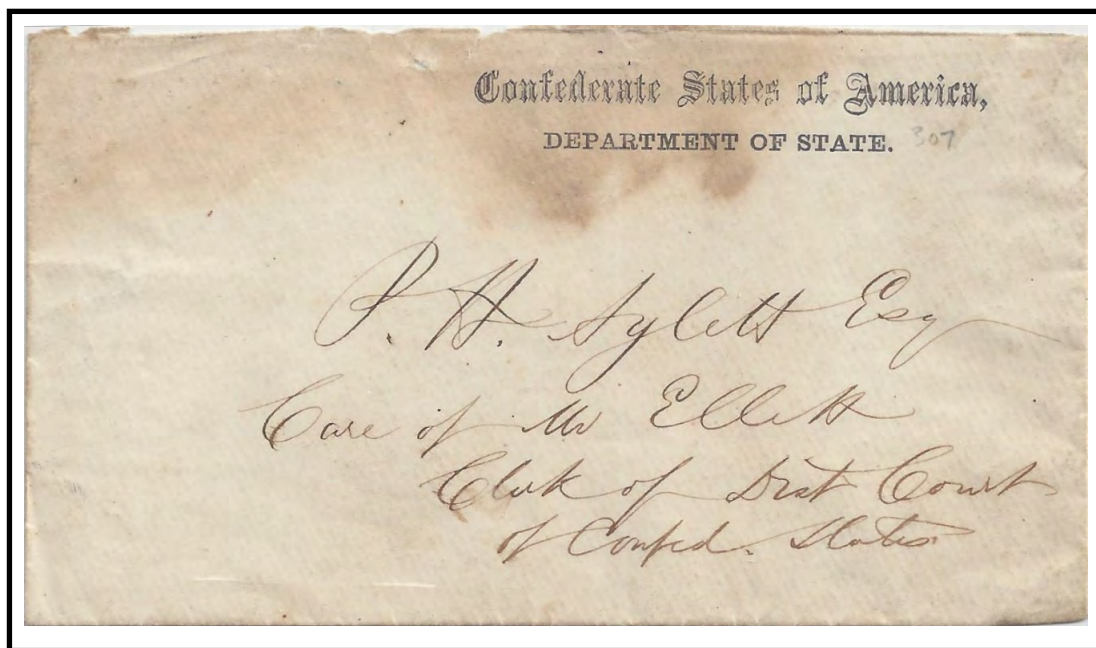 Confederate States of America,
DEPARTMENT OF STATE. 307
P. H. Aylett Esq
Care of Mr Ellett
Clerk of Dist Court
of Confed. States